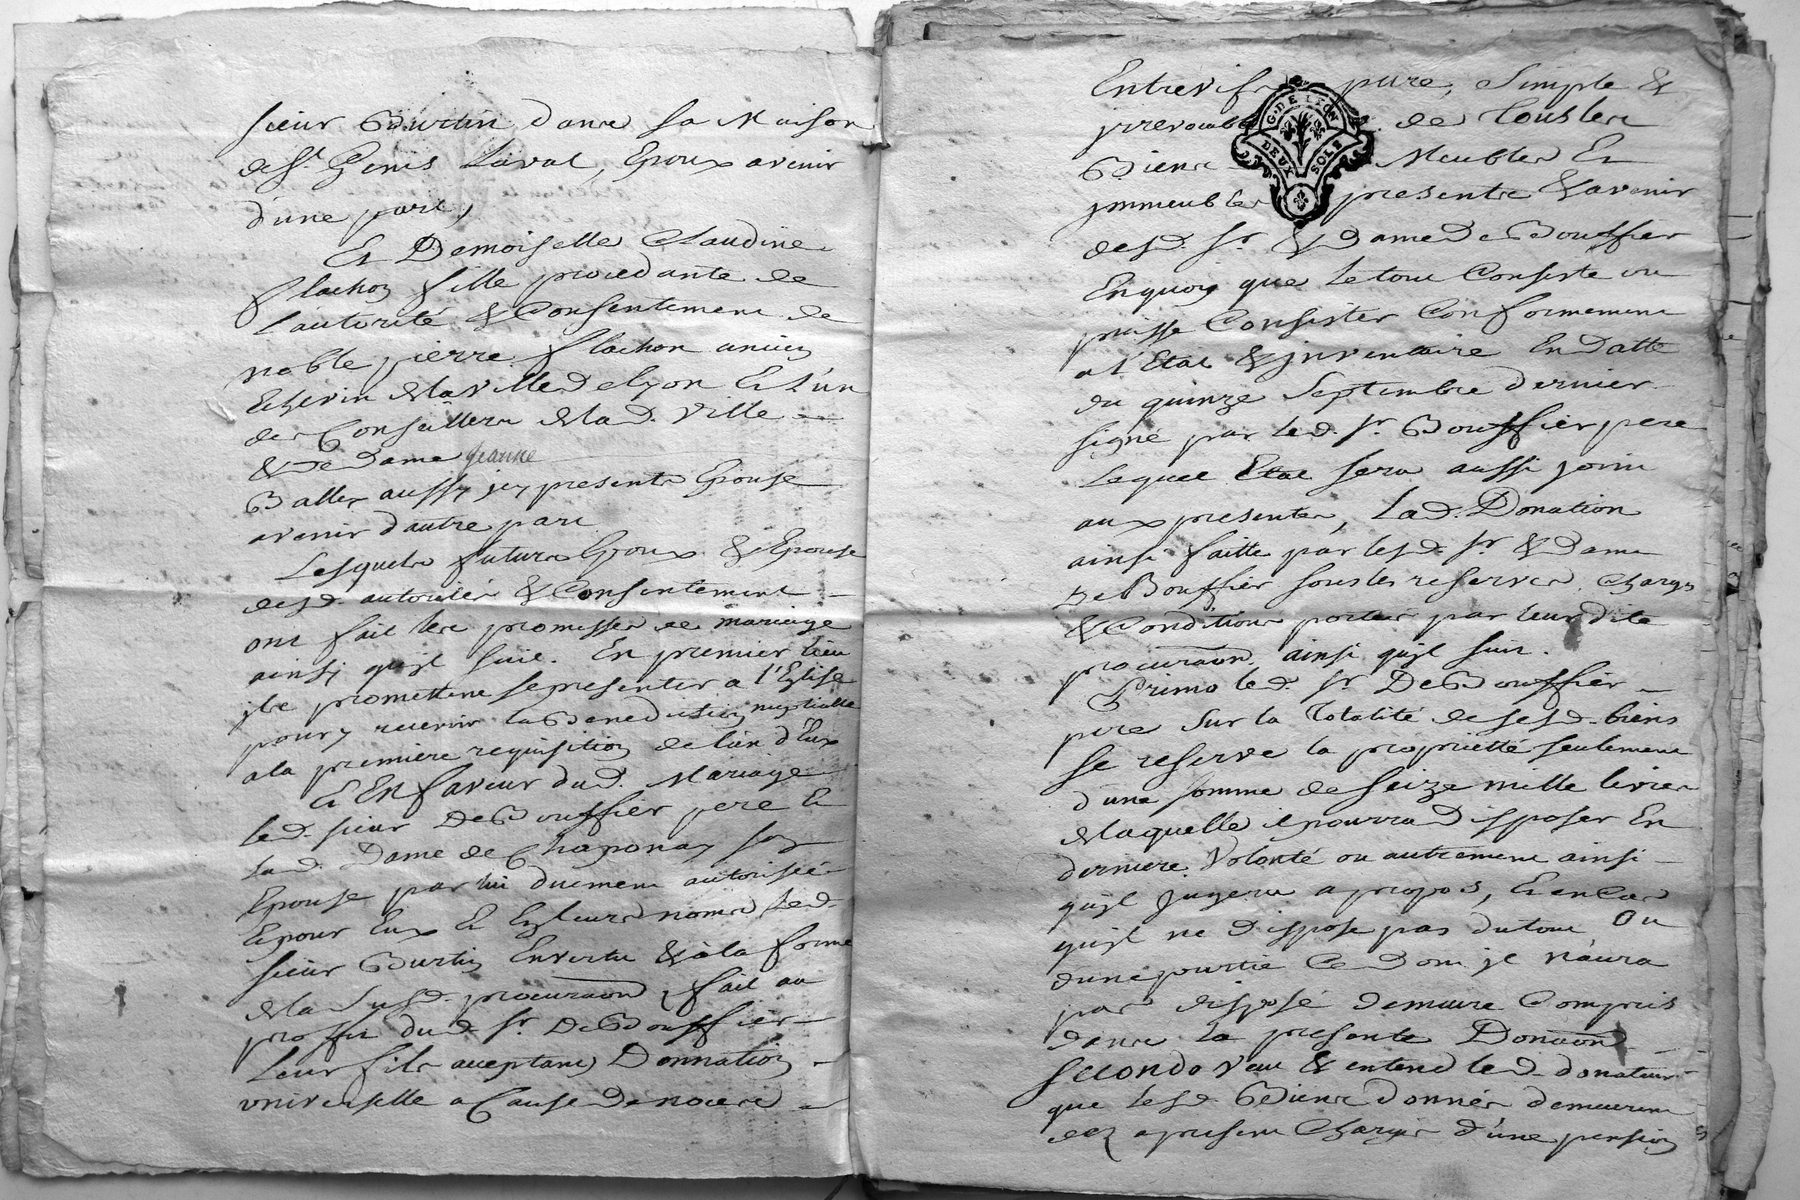 sieur Burtin dans sa Maison
de St. Genis Laval, Epoux avenir
d'une part,
Et Demoiselle Claudine
flachon fille procedante de
l'autorité & Consentement de
noble pierre flachon ancien
Echevin de la Ville de lyon Et l'un
des Conseillers de la d. Ville
& de Dame jeanne
Balley aussy icy presents Epouse
avenir d'autre part
Lesquels futurs Epoux & Epouse
desd. autorités & Consentement
ont fait les promesses de mariage
ainsy qu'jl suit. En premier lieu
jls promettent se presenter a l'Eglise
pour y recevoir la Benediction nuptialle
a la premiere requisition de l'un d'Eux
Et En faveur dud. Mariage
led. sieur De Bouffier pere Et
lad. Dame de Chaponay son
Epouse par lui duement autorisée
Et pour Eux Et En leurs noms led.
sieur Burtin En vertu & à la forme
de la susd. procuraon, fait au
proffit dud. Sr. De Bouffier
leur fils acceptant Donnation
vniverselle a Cause de noces
Entrevifs pure, simple &
jrrevocable de tous les
G. DE LYON
DEUX SOLS
Biens Meubles Et
jmmeubles presents & avenir
desd. Sr. & Dame De Bouffier
En quoy que le tout Consiste ou
puisse Consister Conformement
a l'Etat & jnventaire En Datte
du quinze Septembre dernier
signé par led. Sr. Bouffier pere
lequel Etat sera aussi joint
aux presentes, lad. Donation
ainsi faitte par lesd. Sr. & Dame
De Bouffier sous les reserves, Charges
& Conditions portées par leur dite
procuraon ainsi qu'jl suit.
Primo led. Sr. De Bouffier
pere sur la Totalité de sesd. biens
se reserve la proprietté seulement
d'une somme de seize mille livres
de laquelle il pourra disposer En
derniere Volonté ou autrement ainsi
qu'jl jugera a propos, Et en Cas
qu'jl ne dispose pas du tout Ou
d'une partie Ce Dont jl n'aura
pas disposé demeure Compris
dans la presente Donaon
secondo Veut & entend led. donateur
que lesd. Biens donnés demeurent
dez apresent Chargés d'une pension